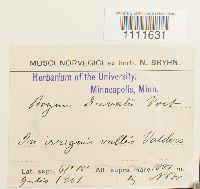 1111631
MUSCI NORVEGICI ex herb. N. BRYHN.
Herbarium of the University.
Minneapolis, Minn.
Bryum Duvalii Voit
In irriguis vallis Valders
Lat. sept. 61° Alt. supra mare 1000 m
Julio 1881